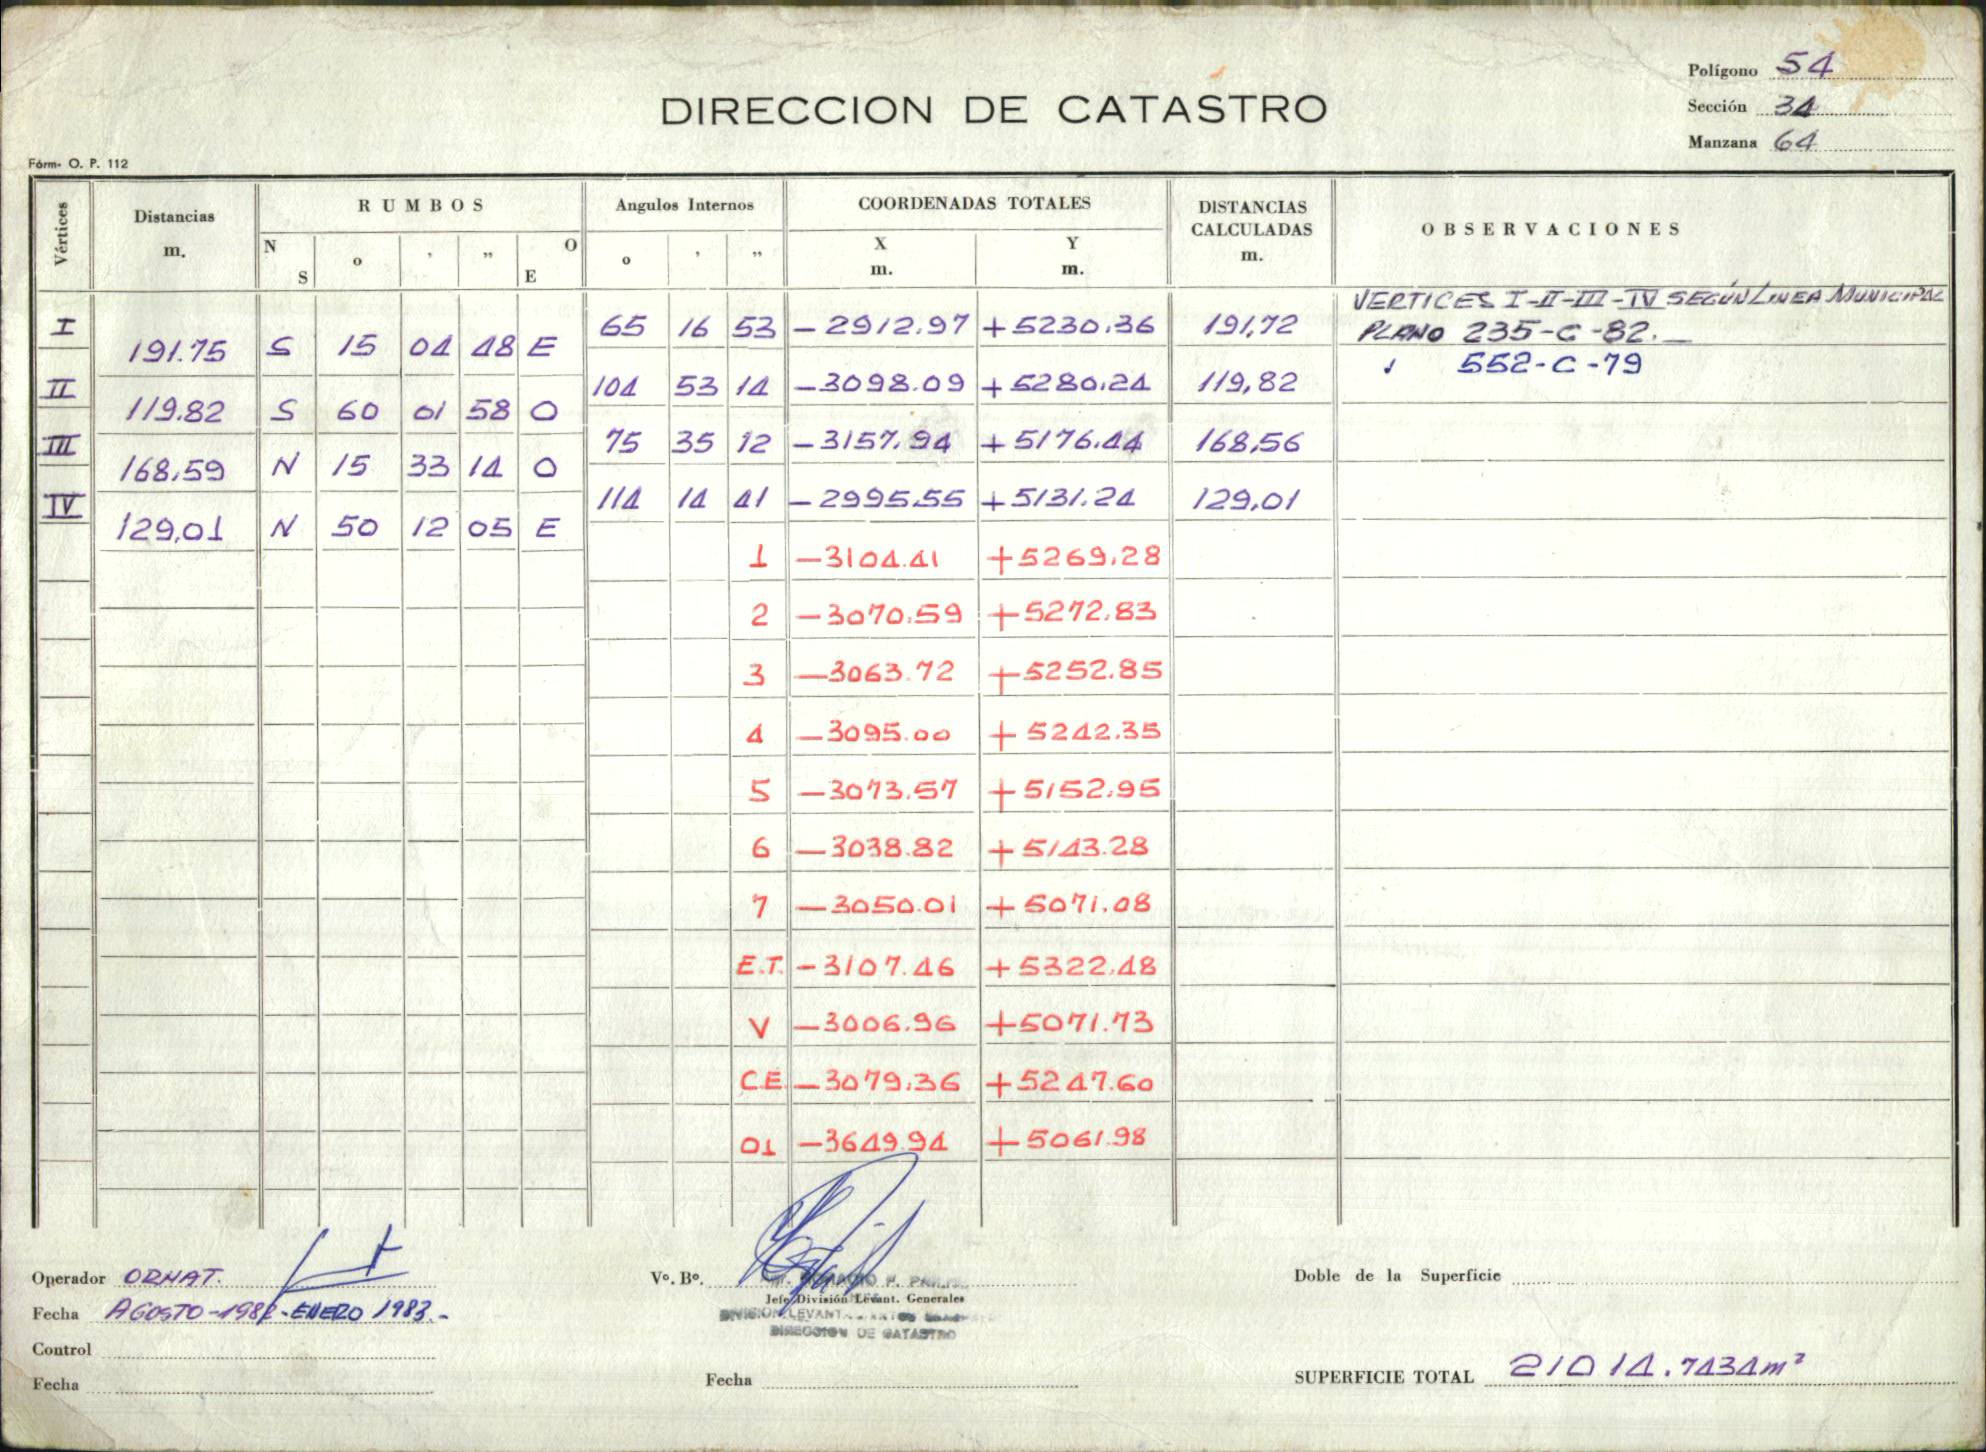 Polígono 54
DIRECCION DE CATASTRO
Sección 34
Manzana 64
Fórm. O. P. 112
Vértices Distancias m. RUMBOS N S o ' " O E Angulos Internos o ' " COORDENADAS TOTALES X m. Y m. DISTANCIAS CALCULADAS m. OBSERVACIONES
VERTICES I-II-III-IV SEGÚN LINEA MUNICIPAL
I 65 16 53 -2912.97 +5230.36 191,72 PLANO 235-C-82.
191.75 S 15 04 48 E
" 552-C-79
II 104 53 14 -3098.09 +5280.24 119,82
119.82 S 60 01 58 O
III 75 35 12 -3157.94 +5176.44 168,56
168.59 N 15 33 14 O
IV 114 14 41 -2995.55 +5131.24 129,01
129,01 N 50 12 05 E
1 -3104.41 +5269.28
2 -3070.59 +5272.83
3 -3063.72 +5252.85
4 -3095.00 +5242.35
5 -3073.57 +5152.95
6 -3038.82 +5143.28
7 -3050.01 +5071.08
E.T. -3107.46 +5322.48
V -3006.96 +5071.73
C.E. -3079.36 +5247.60
01 -3649.94 +5061.98
Operador ORNAT.
Vo. Bo.
Doble de la Superficie
Jefe División Levant. Generales
Fecha AGOSTO-1982-ENERO 1983.-
DIVISION LEVANT.
DIRECCION DE CATASTRO
Control
Fecha
Fecha
SUPERFICIE TOTAL 21014.7434m²